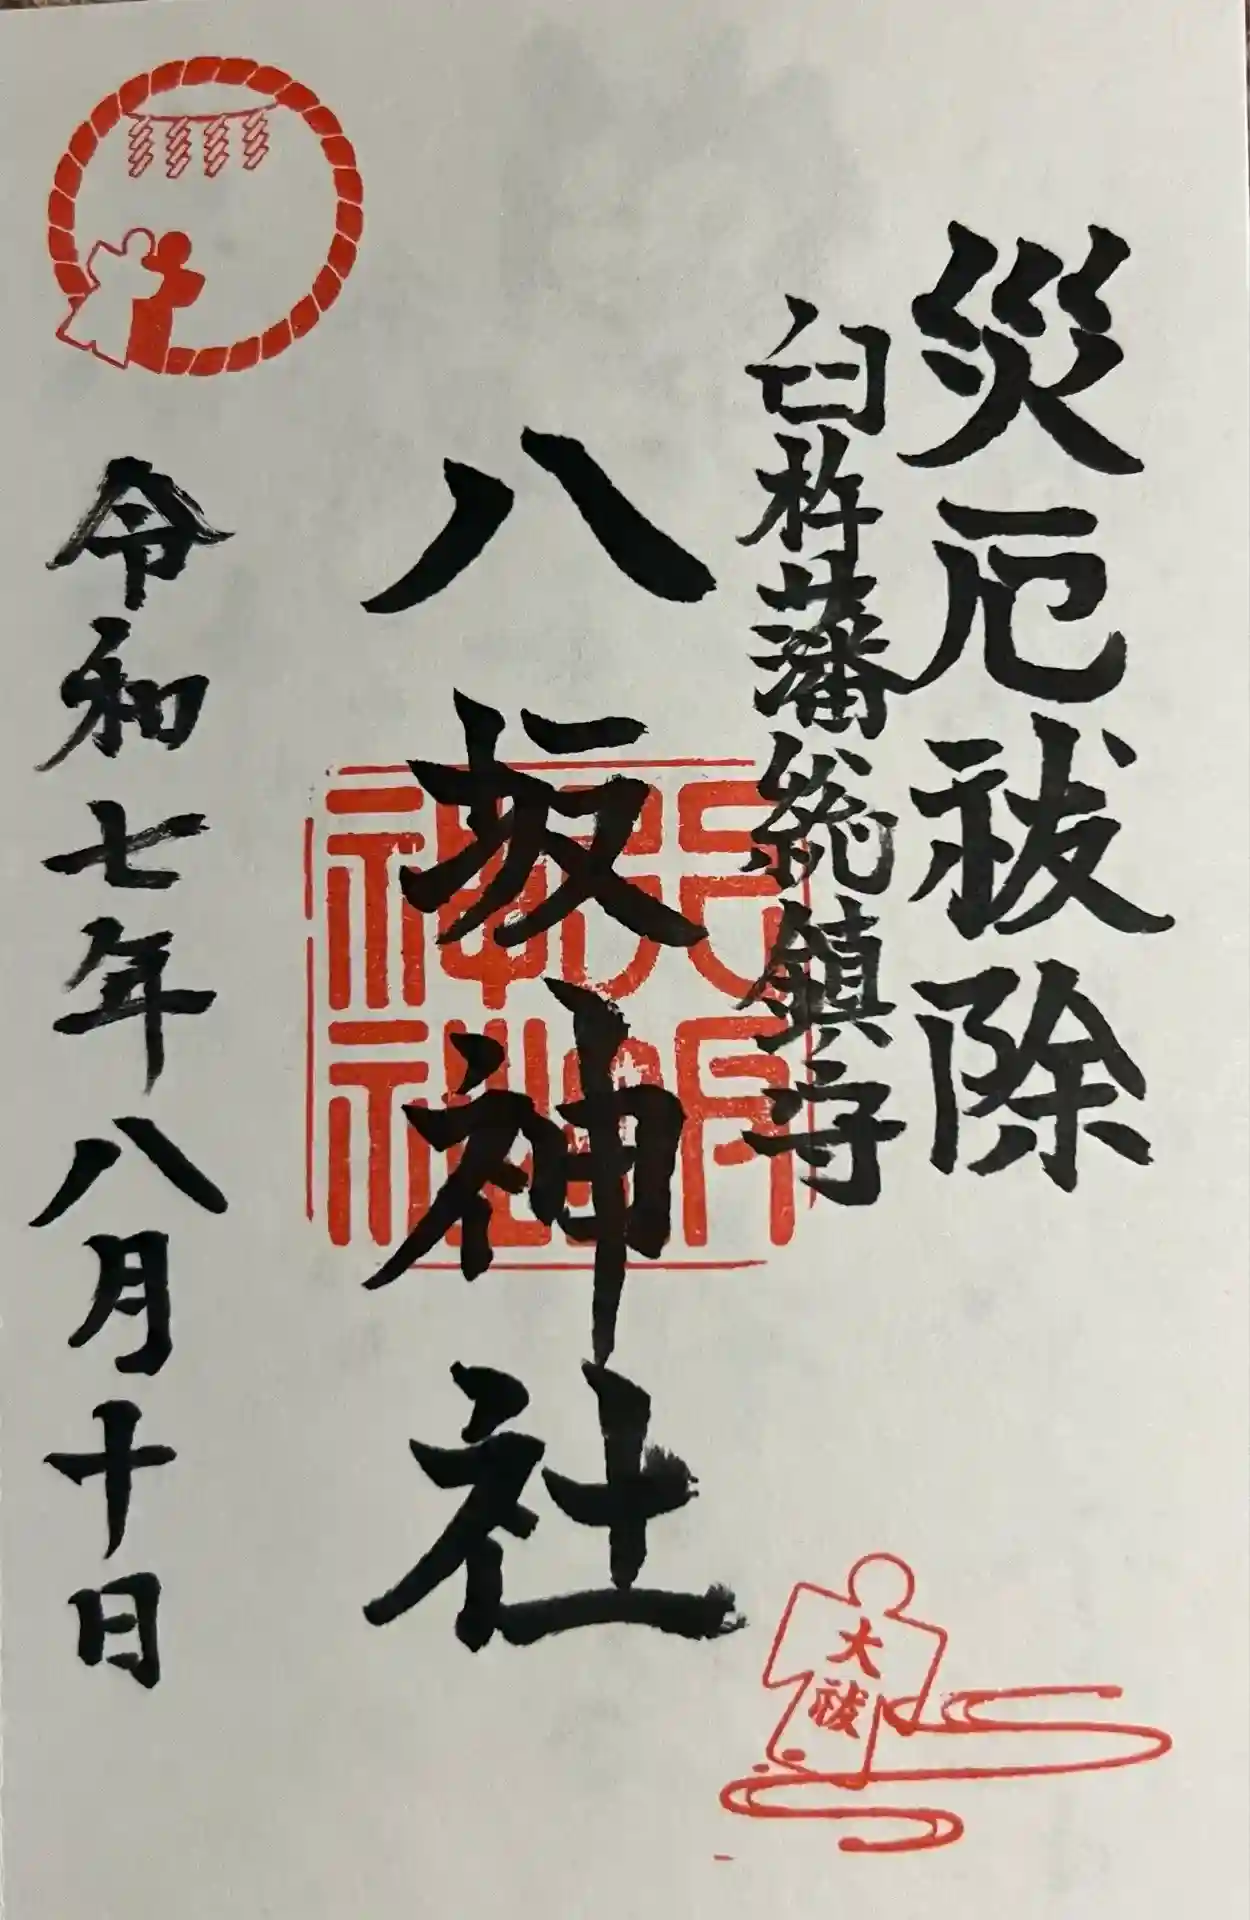 災厄祓除
臼杵藩総鎮守
八坂神社
令和七年八月十日
大祓